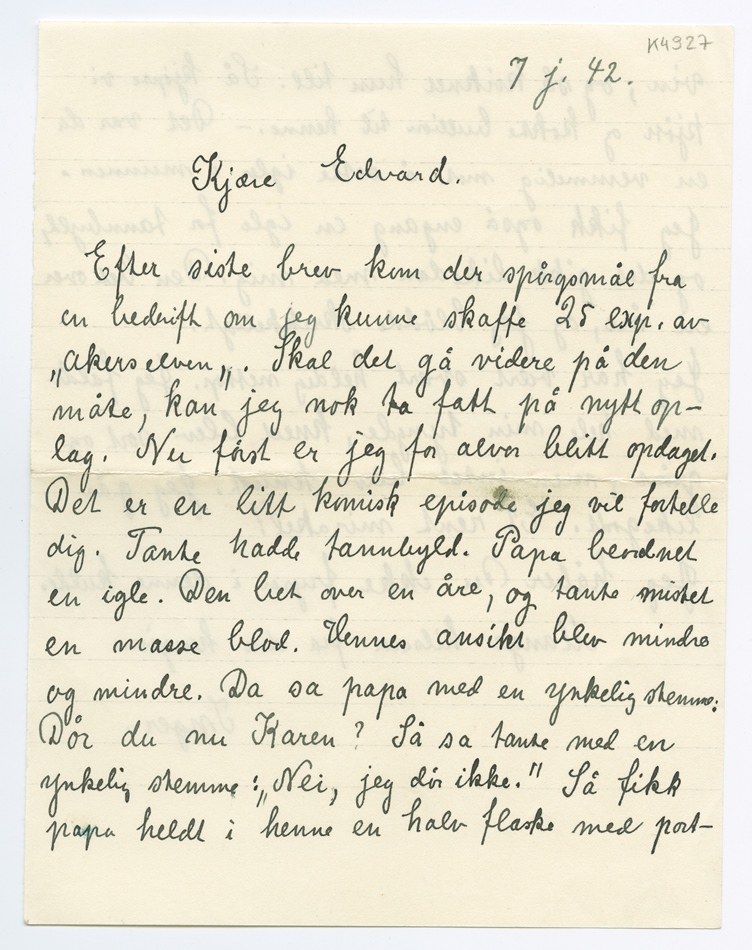 K4927
7 j. 42.
Kjære Edvard.
Efter siste brev kom der spørgsmål fra
en bedrift om jeg kunne skaffe 25 exp. av
„Akerselven„. Skal det gå videre på den
måte, kan jeg nok ta fatt på nytt op-
lag. Nu først er jeg for alvor blitt opdaget.
Det er en litt komisk episode jeg vil fortelle
dig. Tante hadde tannbyld. Papa beordret
en igle. Den bet over en åre, og tante mistet
en masse blod. Hennes ansikt blev mindre
og mindre. Da sa papa med en ynkelig stemme:
Dør du nu Karen? Så sa tante med en
ynkelig stemme: „Nei, jeg dør ikke." Så fikk
papa heldt i henne en halv flaske med port-